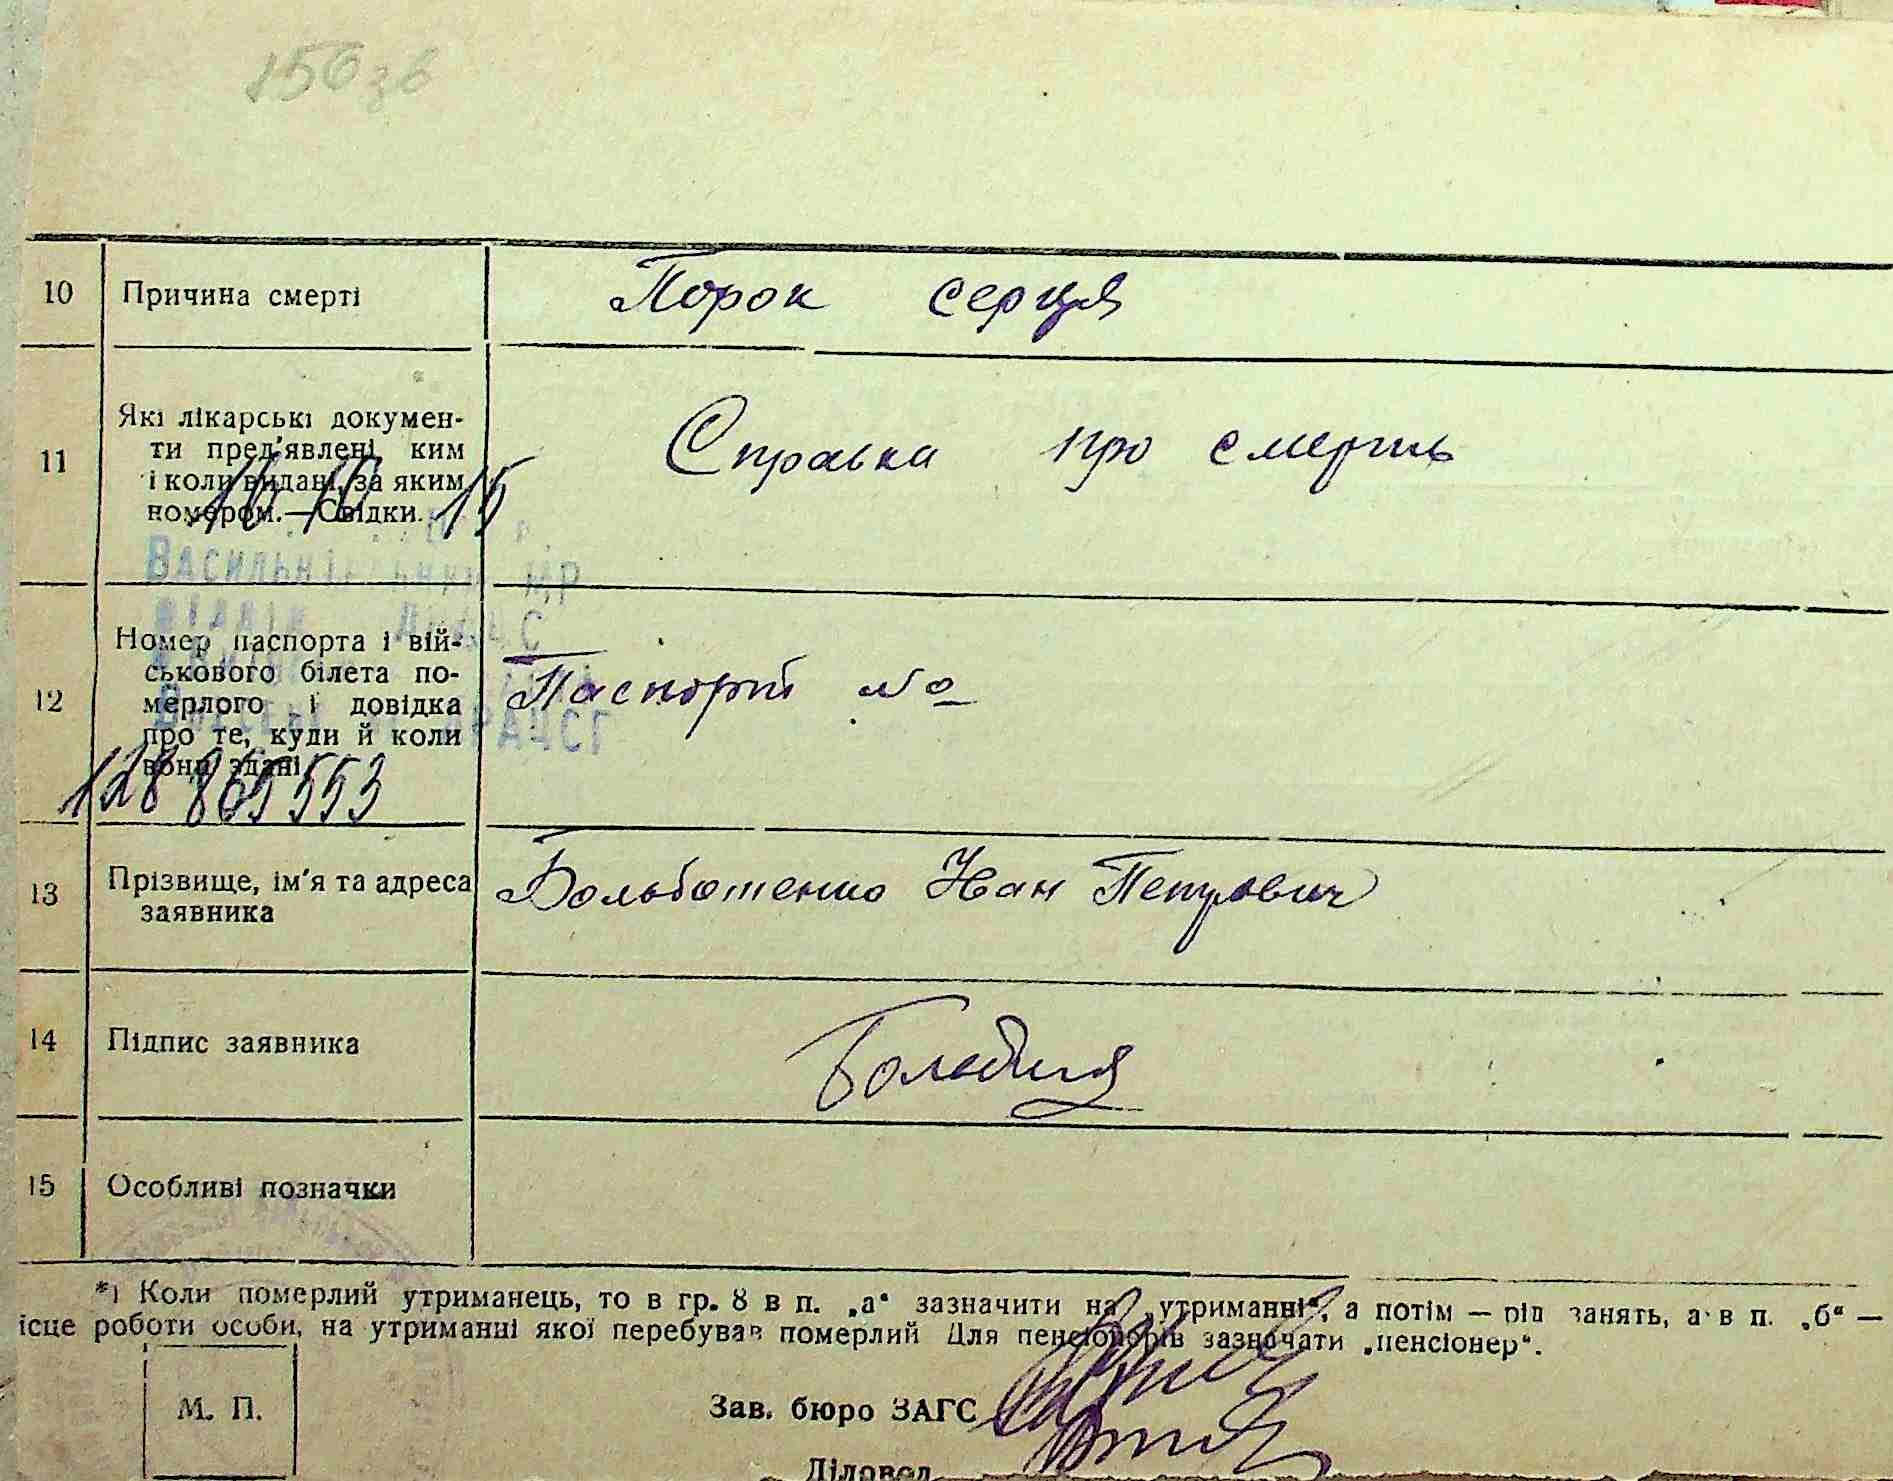 150 зв
10 Причина смерті Порок серця
11 Які лікарські докумен-
ти пред'явлені, ким
і коли видані, за яким
номером.—Свідки.
Справка про смерть
16 10 15
12 Номер паспорта і вій-
ськового білета по-
мерлого і довідка
про те, куди й коли
вони здані
Паспорт №
128 865553
13 Прізвище, ім'я та адреса
заявника
Больботенко Иван Петрович
14 Підпис заявника
15 Особливі позначки
*) Коли померлий утриманець, то в гр. 8 в п. „а“ зазначити на „утриманні“, а потім — рід занять, а в п. „б“ —
ісце роботи особи, на утриманні якої перебував померлий Для пенсіонерів зазначати „пенсіонер“.
М. П.
Зав. бюро ЗАГС
Діловод